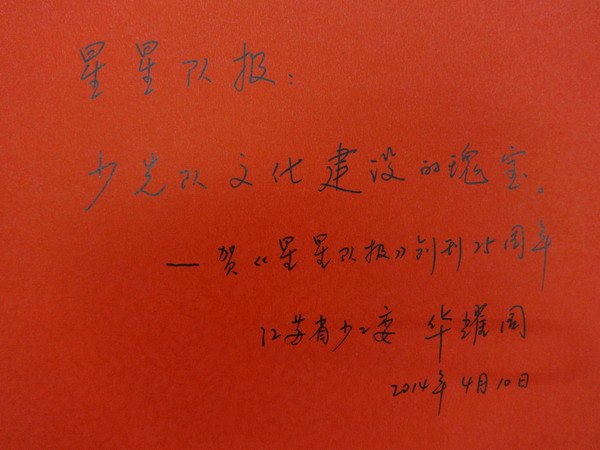 星星队报：
少先队文化建设的瑰宝。
—贺《星星队报》创刊25周年
江苏省少工委 华耀国
2014年4月10日